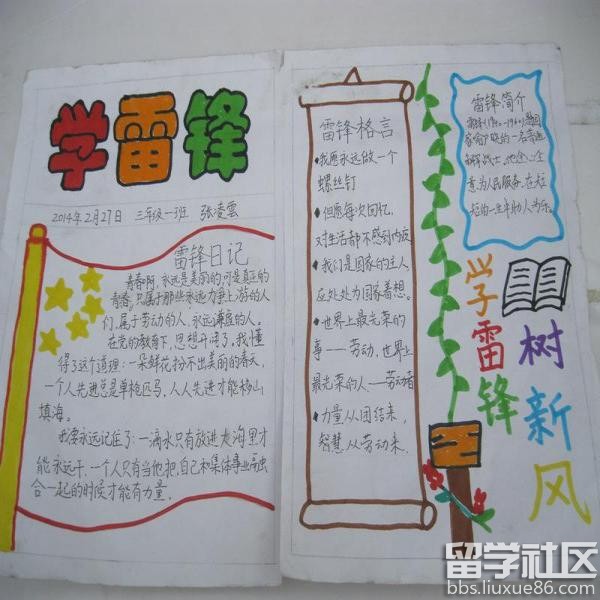 学雷锋
2014年2月27日 三年级一班 张凌云
雷锋日记
青春啊,永远是美丽的,可是真正的
青春,只属于那些永远力争上游的人
们,属于劳动的人,永远谦虚的人。
在党的教育下,思想开朗了,我懂
得了这个道理:一朵鲜花扮不出美丽的春天,
一个人先进总是单枪匹马,人人先进才能移山
填海。
我要永远记住了:一滴水只有放进大海里才
能永远干,一个人只有当他把自己和集体事业融
合一起的时候才能有力量。
雷锋格言
•我愿永远做一个
螺丝钉
•但愿每次回忆,
对生活都不感到内疚
•我们是国家的主人,
应处处为国家着想。
•世界上最光荣的
事——劳动,世界上
最光荣的人——劳动者
•力量从团结来,
智慧从劳动来.
雷锋简介
意为人民服务,在短
学雷锋
树新风
留学社区
bbs.liuxue86.com